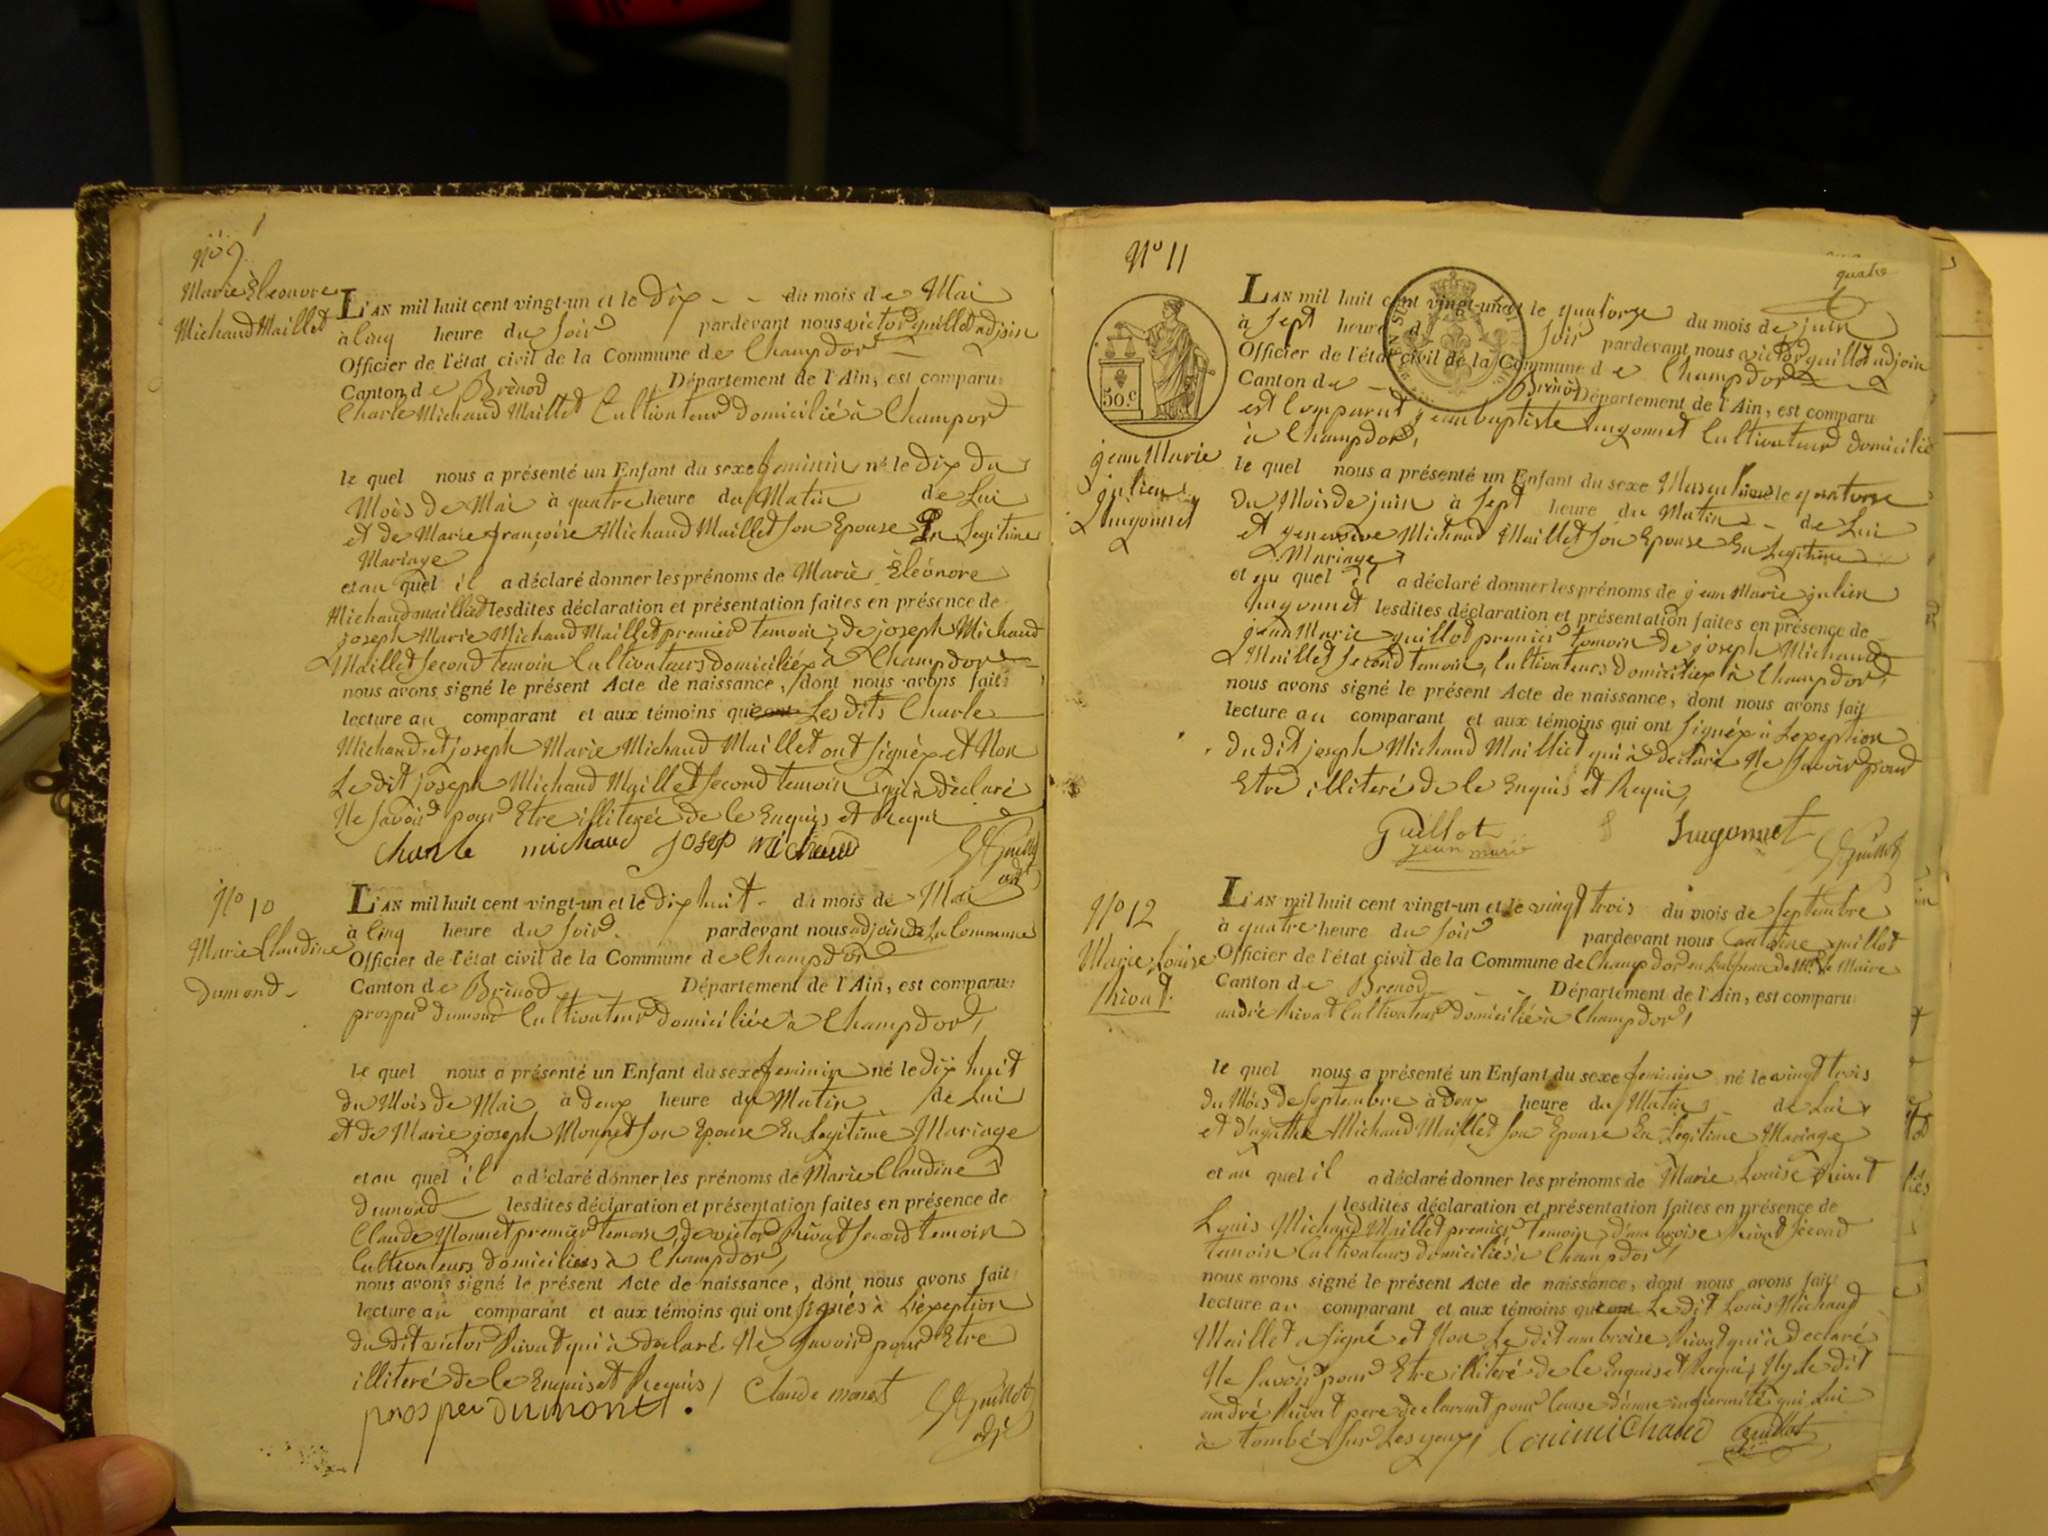 N.o 9
Marie Eleonore
Michaud Maillet
L'AN mil huit cent vingt-un et le Dix du mois de Mai
à Cinq heure du soir pardevant nous victor guillot adjoin
Officier de l'état civil de la Commune de Champdor
Canton de Brènod Département de l'Ain, est comparu
Charle Michaud Maillet Cultivateur domicilié à Champor
le quel nous a présenté un Enfant du sexe feminin né le Dix du
Mois de Mai à quatre heure du Matin de Lui
et de Marie françoise Michaud Maillet son Epouse En Legitime
Mariage
et au quel il a déclaré donner les prénoms de Marie Eléonore
Michaud maillet lesdites déclaration et présentation faites en présence de
joseph Marie Michaud Maillet premier temoin, de joseph Michaud
Maillet second temoin Cultivateurs domiciliéx à Champdor
nous avons signé le présent Acte de naissance, dont nous avons fait
lecture au comparant et aux témoins qui ont Les dits Charle
Michaud et joseph Marie Michaud Maillet ont signéx et Non
Le dit joseph Michaud Maillet second temoin qui à déclaré
Ne savoir pour Etre illiteré de le Enquis et Requi
Charle michaud josep michaud Guillot
adj
N.o 10
Marie Claudine
Dumond
L'AN mil huit cent vingt-un et le dix huit du mois de Mai
à Cinq heure du soir pardevant nous adjoin de La Commune
Officier de l'état civil de la Commune de Champdor
Canton de Brènod Département de l'Ain, est comparu
prosper dumond Cultivateur domiciliée à Champdor,
le quel nous a présenté un Enfant du sexe feminin né le dix huit
du Mois de Mai à deux heure du Matin de Lui
et de Marie joseph Monnet son Epouse En Legitime Mariage
et au quel il a déclaré donner les prénoms de Marie Claudine
dumond lesdites déclaration et présentation faites en présence de
Claude Monnet premier temoin, de victor Rivat second temoin
Cultivateurs domiciliés à Champdor,
nous avons signé le présent Acte de naissance, dont nous avons fait
lecture au comparant et aux témoins qui ont signés à L'exeption
du dit victor Rivat qui à declaré Ne savoir pour Etre
illiteré de le Enquis et Requis, Claude monet Guillot
prosper Dumont. adj
N.o 11
quatre
50.c
jean Marie
julien
Jugonnet
L'AN mil huit cent vingt-un et le quatorze du mois de juin
à sept heure du soir pardevant nous victor guillot adjoin
Officier de l'état civil de la Commune de Champdor
Canton de Brènod Département de l'Ain, est comparu
est Comparut jean baptiste Jugonnet Cultivateur domicilié
à Champdor,
le quel nous a présenté un Enfant du sexe Masculin né le quatorze
du Mois de juin à sept heure du Matin de Lui
et genevieve Michaud Maillet son Epouse En Legitime
Mariage
et au quel il a déclaré donner les prénoms de jean Marie julien
Jugonnet lesdites déclaration et présentation faites en présence de
jean Marie guillot premier temoin de joseph Michaud
Maillet second temoin, Cultivateurs domiciliéx à Champdor,
nous avons signé le présent Acte de naissance, dont nous avons fait
lecture au comparant et aux témoins qui ont signéx à Lexeption
du dit joseph Michaud Maillet qui à declaré Ne savoir pour
Etre illiteré de le Enquis et Requis
Guillot Jugonnet Guillot
jean marie
N.o 12
Marie Louise
Rivat.
L'AN mil huit cent vingt-un et le vingt trois du mois de septembre
à quatre heure du soir pardevant nous guillot
Officier de l'état civil de la Commune de Champdor en Labsence de Mr Le Maire
Canton de Brenod Département de l'Ain, est comparu
andré Rivat Cultivateur domicilié à Champdor,
le quel nous a présenté un Enfant du sexe feminin né le vingt trois
du Mois de septembre à deux heure du Matin de Lui
et d'agathe Michaud Maillet son Epouse En Legitime Mariage
et au quel il a déclaré donner les prénoms de Marie Louise Rivat
lesdites déclaration et présentation faites en présence de
Louis Michaud Maillet premier temoin, d'ambroise Rivat second
temoin Cultivateurs domiciliés à Champdor,
nous avons signé le présent Acte de naissance, dont nous avons fait
lecture au comparant et aux témoins qui ont Le dit Louis Michaud
Maillet a signé et Non Le dit ambroise Rivat qui à declaré
Ne savoir pour Etre illiteré de le Enquis et Requis, Ny Le dit
andré Rivat pere declarant pour Cause d'une infirmité qui Lui
à tombé sur Les yeux, Louimichaud Guillot